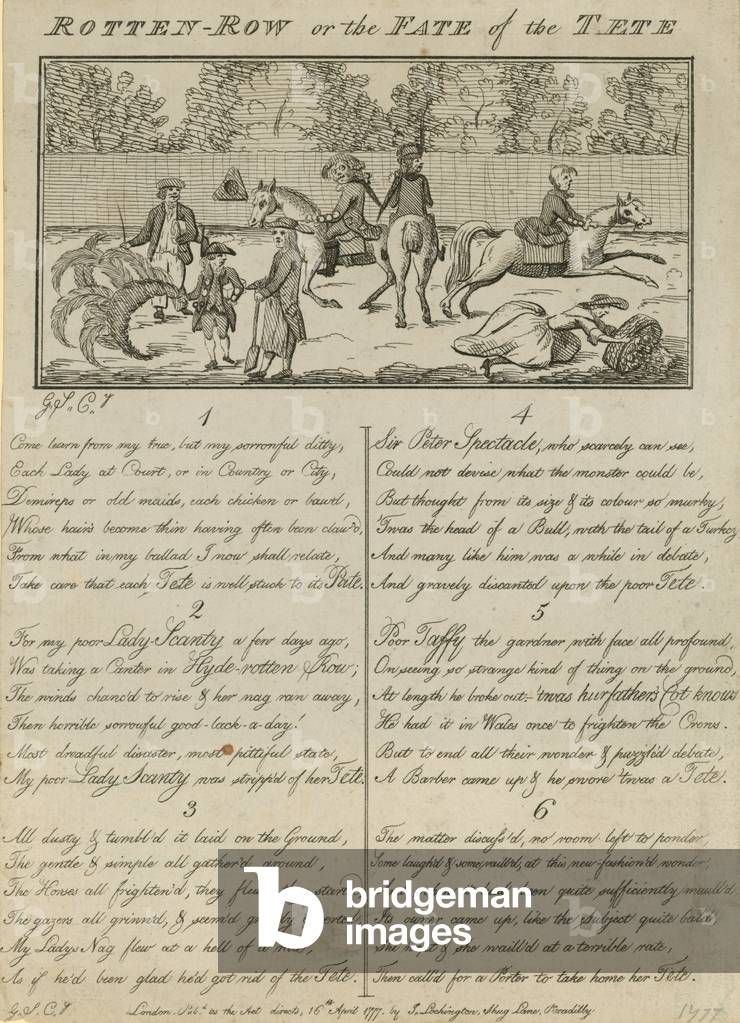 ROTTEN-ROW or the FATE of the TETE
G.S,, C,, γ
1
Come learn from my true, but my sorronful ditty,
Each Lady at Court, or in Country or City,
Demireps or old maids, each chicken or bawd,
Whose hairs become thin having often been claw'd,
From what in my ballad I now shall relate,
Take care that each Tete is well stuck to its Pate.
2
For my poor Lady Scanty a few days ago,
Was taking a Canter in Hyde-rotten Row;
The winds chanc'd to rise & her nag ran away,
Then horrible sorrouful good-lack-a-day!
Most dreadful disaster, most pittiful state,
My poor Lady Scanty was stripp'd of her Tete.
3
All dusty & tumbl'd it laid on the Ground,
The gentle & simple all gather'd around,
The Horses all frighten'd, they
The gazers all grinn'd, & seem'd
My Ladys Nag flew at a hell of a
As if he'd been glad he'd got rid of the Tete.
4
Sir Peter Spectacle, who scarcely can see,
Could not devise what the monster could be,
But thought from its size & its colour so murky,
'Twas the head of a Bull, with the tail of a Turkey
And many like him was a while in debate,
And gravely discanted upon the poor Tete.
5
Poor Taffy the gardner with face all profound,
On seeing so strange kind of thing on the ground,
At length he broke out,- 'twas hur fathers Cot knows
He had it in Wales once to frighten the Crows.
But to end all their wonder & puzzl'd debate,
A Barber came up & he swore 'twas a Tete.
6
The matter discuss'd, no room left to ponder,
Some laugh'd & some raill'd, at this new-fashion'd wonder,
been quite sufficiently maull'd
Its owner came up, like the subject quite bald
She & she waill'd at a terrible rate,
Then call'd for a Porter to take home her Tete.
G.S. C. γ London. Pub.d as the Act directs, 16th April 1777. by J. Lockington, Shug Lane, Piccadilly.
1777
b bridgeman images